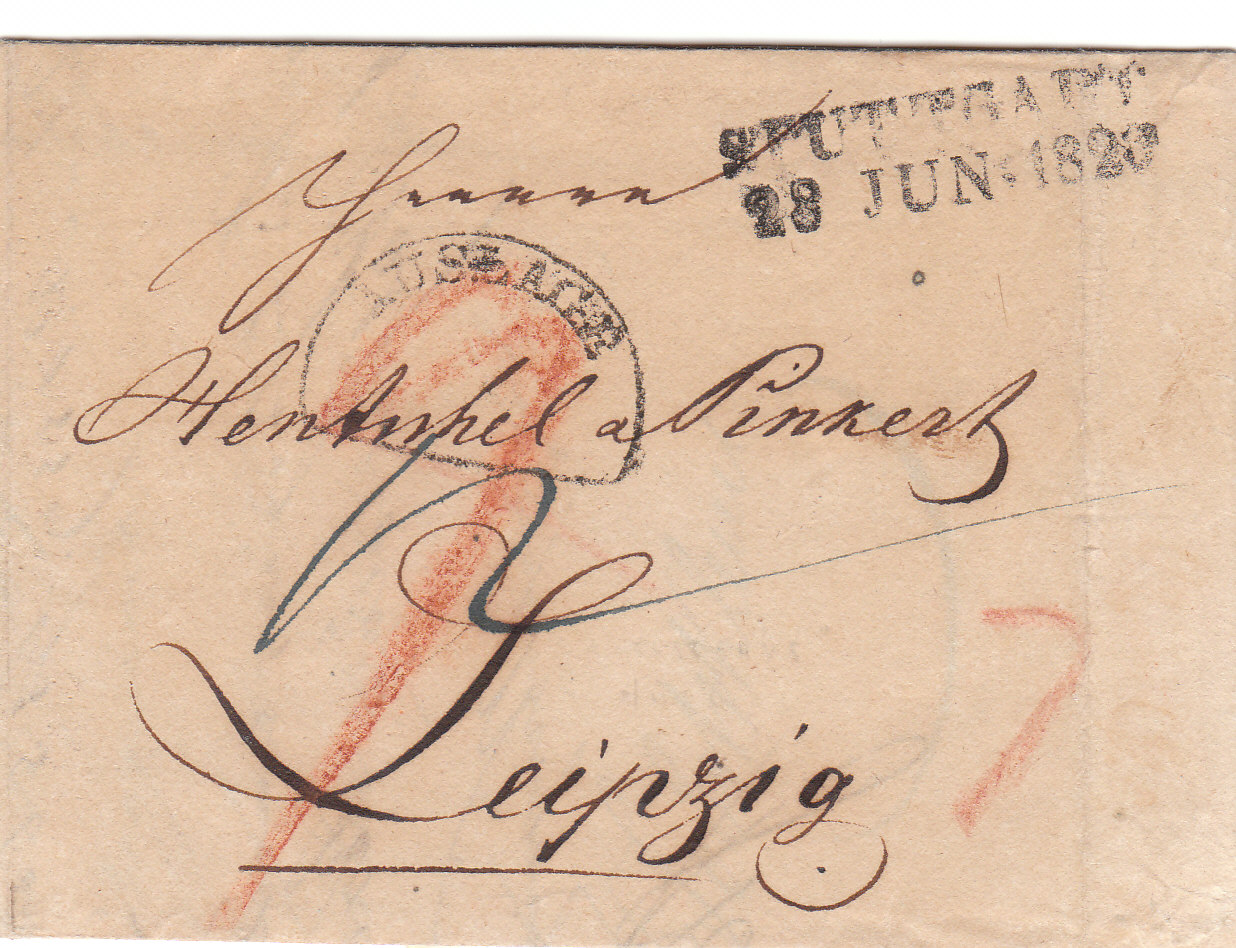 STUTTGART
28 JUN. 1829
Herren
AUSLAGE
Hentschel a Pinkert
Leipzig
7